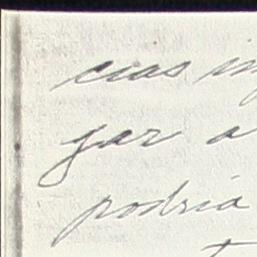 cias
gar a
podria